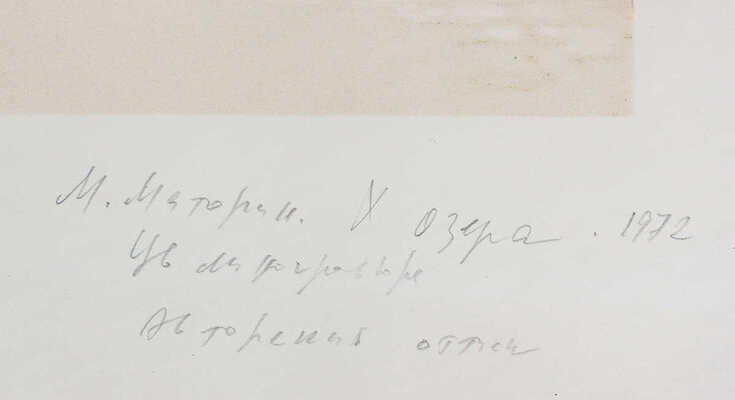 М. Маторин. У озера. 1972
Цв линогравюра
Авторский оттиск